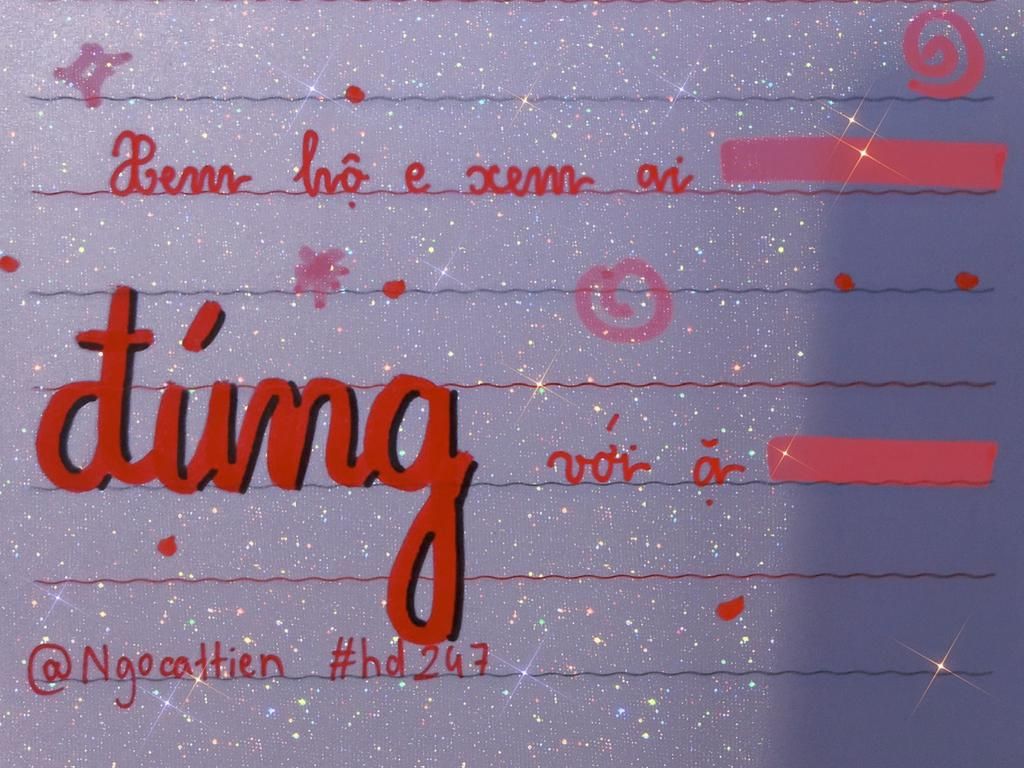 Xem hộ e xem ai
đứng
với ặ
@Ngocattien #hd247